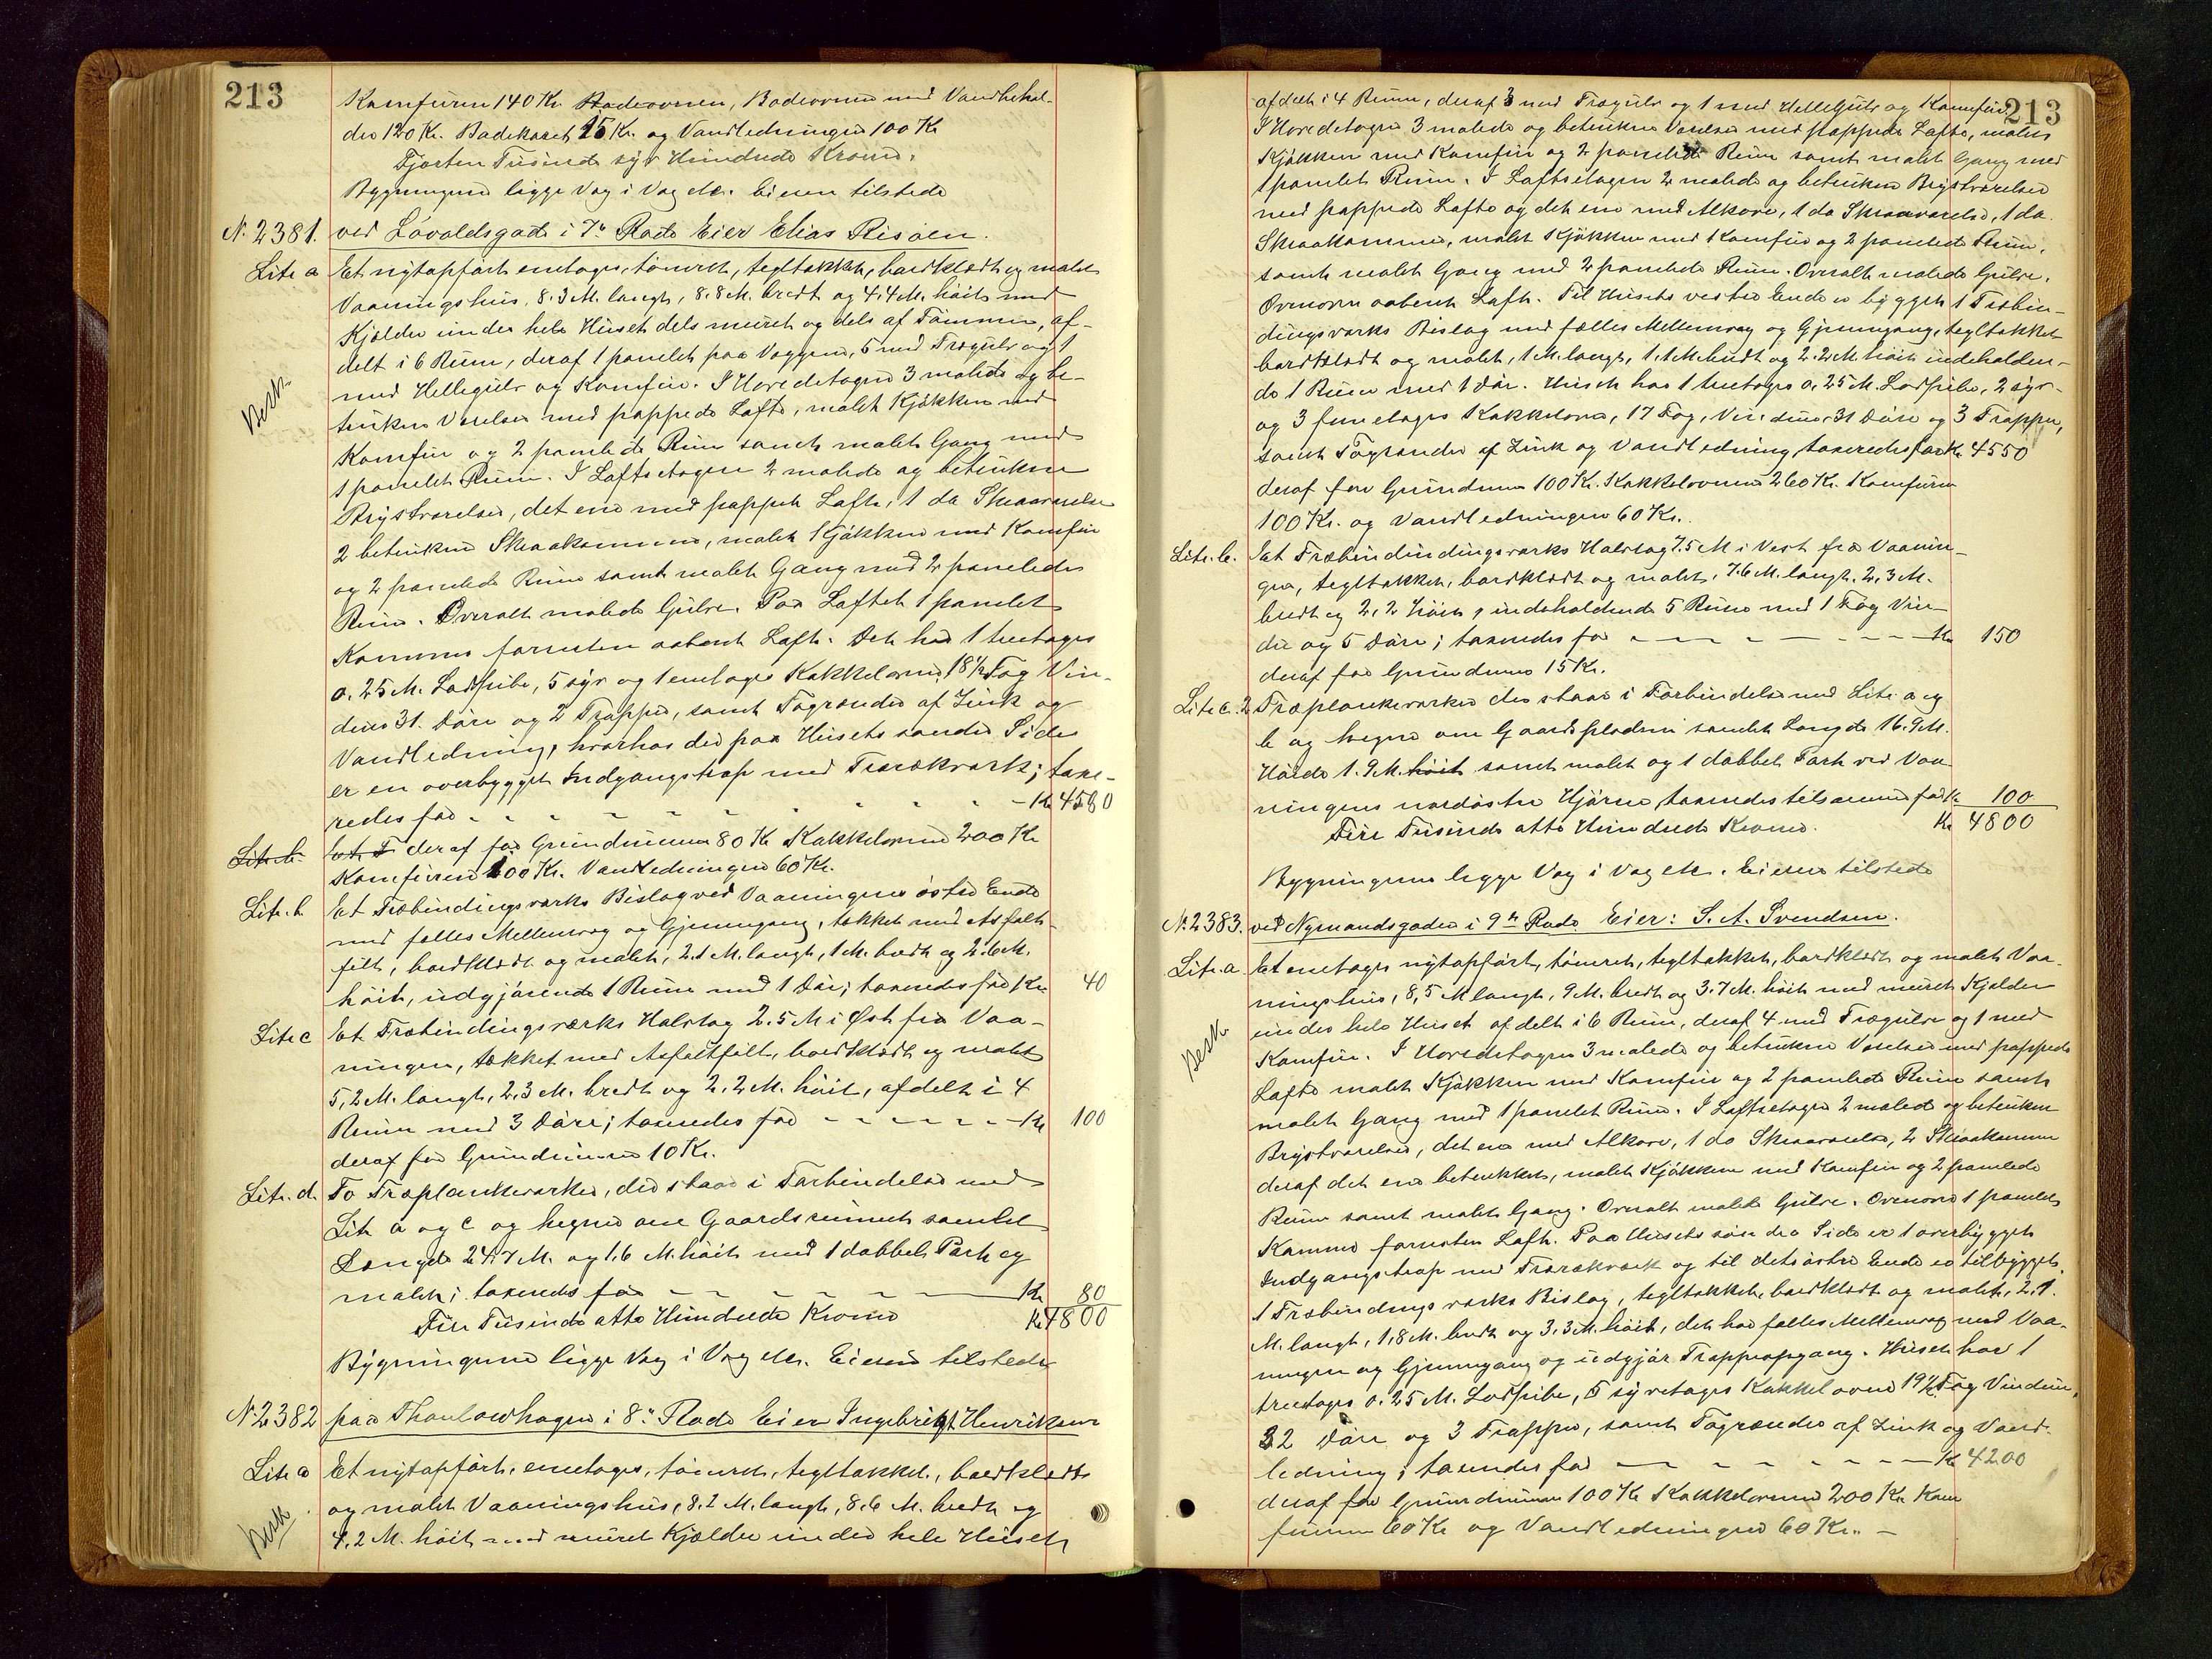 213
Komfuren 140 Kr. Badeovnen, Badeovnen med Vandbehol-
der 120 Kr. Badekaret 25 Kr. og Vandledningen 100 Kr
Fjorten Tusinde syv Hundrede Kroner.
Bygningerne ligge Væg i Væg etc. Eieren tilstede
N. 2381. ved Løvoldsgade i 7de Rode Eier Elias Risøen.
Litr a Et nytopført enetages, tømret, tegltækket, bordklædt og malet
Vaaningshus, 8.3 M. langt, 8.8 M. bredt og 4.4 M. høit med
Kjælder under hele Huset dels muret og dels af Tømmer, af-
delt i 6 Rum, deraf 1 panelet paa Væggene, 5 med Trægulv og 1
med Hellegulv og Komfur. I Hovedetagen 3 malede og be-
Besk.
trukne Værelser med pappede Lofte, malet Kjøkken med
Komfur og 2 panelede Rum samt malet Gang med
1 panelet Rum. I Loftsetagen 2 malede og betrukne
Brystværelser, det ene med pappet Loft, 1 do Skraaværelse
2 betrukne Skraakammere, malet Kjøkken med Komfur
og 2 panelede Rum samt malet Gang med 2 panelede
Rum. Overalt malede Gulve. Paa Loftet 1 panelet
Kammer forresten aabent Loft. Det har 1 treetages
0.25 M. Lodpibe, 5 syv og 1 enetages Kakkelovne, 18½ Fag Vin-
duer 31. Døre og 2 Trapper, samt Tagrender af Zink og
Vandledning, hvorhos der paa Husets søndre Side
er en overbygget Indgangstrap med Trærækværk; taxe-
redes for - - - - - Kr 4580
Litr. b. Et T deraf for Grundmuren 80 Kr Kakkelovnene 200 Kr
Komfurene 100 Kr. Vandledningen 60 Kr.
Litr. b. Et Træbindingsværks Bislag ved Vaaningens østre Ende
med fælles Mellemvæg og Gjennemgang, tækket med Asfalt-
filt, bordklædt og malet, 2.1 M. langt, 1 M. bredt og 2.6 M.
høit, udgjørende 1 Rum med 1 Dør; taxeredes for Kr. 40
Litr c Et Træbindingsværks Halvtag 2.5 M i Øst fra Vaa-
ningen, tækket med Asfaltfilt, bordklædt og malet
5,2 M. langt, 2,3 M. bredt og 2.2 M. høit, afdelt i 4
Rum med 3 Døre; taxeredes for - - - - - Kr 100
deraf for Grundmuren 10 Kr.
Litr. d. To Træplankeværker, der staar i Forbindelse med
Litr a og c og hegner om Gaardsrummet samlet
Længde 24.7 M. og 1.6 M. høit med 1 dobbelt Port og
malet; taxeredes for - - - - - Kr 80
Fire Tusinde otte Hundrede Kroner Kr 4800
Bygningerne ligge Væg i Væg etc. Eieren tilstede
N. 2382 paa Thaulowhagen i 8de Rode Eier Ingebrigt Henriksen
Litr a Et nytopført, enetages, tømret, tegltækket, bordklædt
og malet Vaaningshus, 8.2 M. langt, 8.6 M. bredt og
Besk.
4,2 M. høit med muret Kjælder under hele Huset
213
afdelt i 4 Rum, deraf 3 med Trægulv og 1 med Hellegulv og Komfur.
I Hovedetagen 3 malede og betrukne Værelser med pappede Lofte, malet
Kjøkken med Komfur og 2 panelede Rum samt malet Gang med
1 panelet Rum. I Loftsetagen 2 malede og betrukne Brystværelser
med pappede Lofte og det ene med Alkove, 1 do Skraaværelse, 1 do.
Skraakammer, malet Kjøkken med Komfur og 2 panelede Rum,
samt malet Gang med 2 panelede Rum. Overalt malede Gulve.
Ovenover aabent Loft. Til Husets vestre Ende er bygget 1 Træbin-
dingsværks Bislag med fælles Mellemvæg og Gjennemgang, tegltækket
bordklædt og malet, 1 M. langt, 1.1 M. bredt og 2.2 M. høit indeholden-
de 1 Rum med 1 Dør. Huset har 1 treetages 0,25 M. Lodpibe, 2 syv-
og 3 fireetages Kakkelovne, 17 Fag, Vinduer, 31 Døre og 3 Trapper,
samt Tagrender af Zink og Vandledning taxeredes for Kr. 4550
deraf for Grundmuren 100 Kr. Kakkelovnene 260 Kr. Komfuren
100 Kr. og Vandledningen 60 Kr.
Litr. b. Et Træbindindingsværks Halvtag 7.5 M i Vest fra Vaanin-
gen, tegltækket, bordklædt og malet, 7.6 M. langt, 2,3 M.
bredt og 2,2 høit, indeholdende 5 Rum med 1 Fag Vin-
due og 5 Døre; taxeredes for - - - - - Kr 150
deraf for Grundmuren 15 Kr.
Litr c. 2 Træplankeværker der staar i Forbindelse med Litr a og
b og hegner om Gaardspladsen samlet Længde 16.9 M.
Høide 1.9 M. høit samt malet og 1 dobbelt Port ved Vaa-
ningens nordøstre Hjørne, taxeredes tilsammen for Kr. 100
Fire Tusinde otte Hundrede Kroner. Kr 4800
Bygningerne ligge Væg i Væg etc. Eieren tilstede
N. 2383. ved Nymandsgaden i 9de Rode Eier: S. A. Svendsen.
Litr. a Et enetages nytopført, tømret, tegltækket, bordklædt og malet Vaa-
ningshus, 8,5 M langt, 9 M. bredt og 3.7 M. høit med muret Kjælder
under hele Huset afdelt i 6 Rum, deraf 4 med Trægulve og 1 med
Besk.
Komfur. I Hovedetagen 3 malede og betrukne Værelser med pappede
Lofte malet Kjøkken med Komfur og 2 panelede Rum samt
malet Gang med 1 panelet Rum. I Loftsetagen 2 malede og betrukne
Brystværelser, det ene med Alkove, 1 do Skraaværelse, 2 Skraakammere
deraf det ene betrukket, malet Kjøkken med Komfur og 2 panelede
Rum samt malet Gang. Overalt malede Gulve. Ovenover 1 panelet
Kammer forresten Loft. Paa Husets søndre Side er 1 overbygget
Indgangstrap med Trærækværk og til dets østre Ende er tilbygget
1 Træbindingsværks Bislag, tegltækket, bordklædt og malet, 2,1.
M. langt, 1,8 M. bredt og 3,3 M. høit, det har fælles Mellemvæg med Vaa-
ningen og Gjennemgang og udgjør Trappeopgang. Huset har 1
treetages 0.25 M. Lodpibe, 5 syvetages Kakkelovne 19½ Fag Vinduer,
32 Døre og 3 Trapper, samt Tagrender af Zink og Vand-
ledning; taxeredes for - - - - - Kr 4200
deraf for Grundmuren 100 Kr Kakkelovnene 200 Kr Kom
furene 60 Kr og Vandledningen 60 Kr. -